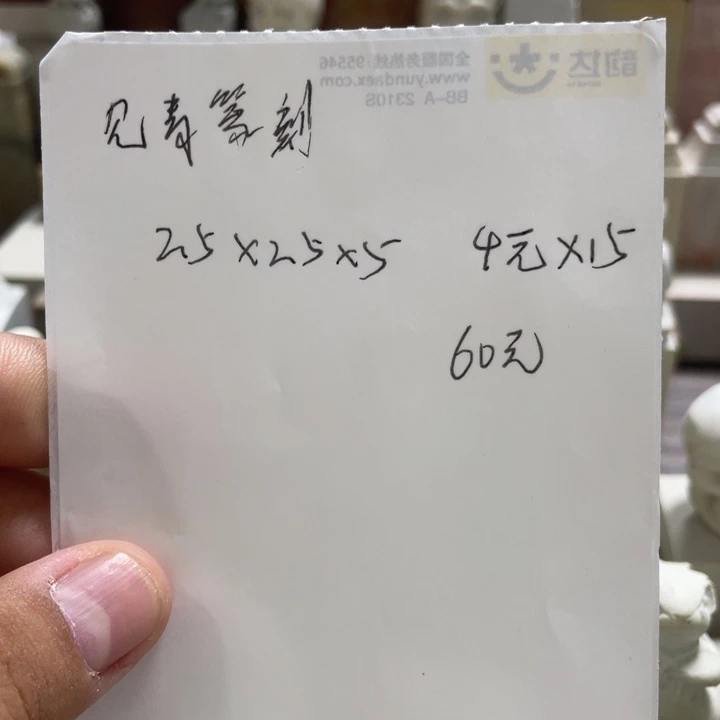 全国服务热线:95546
www.yundaex.com
BB-A 2310S
韵达
见青篆刻
25×25×5 4元×15
60元